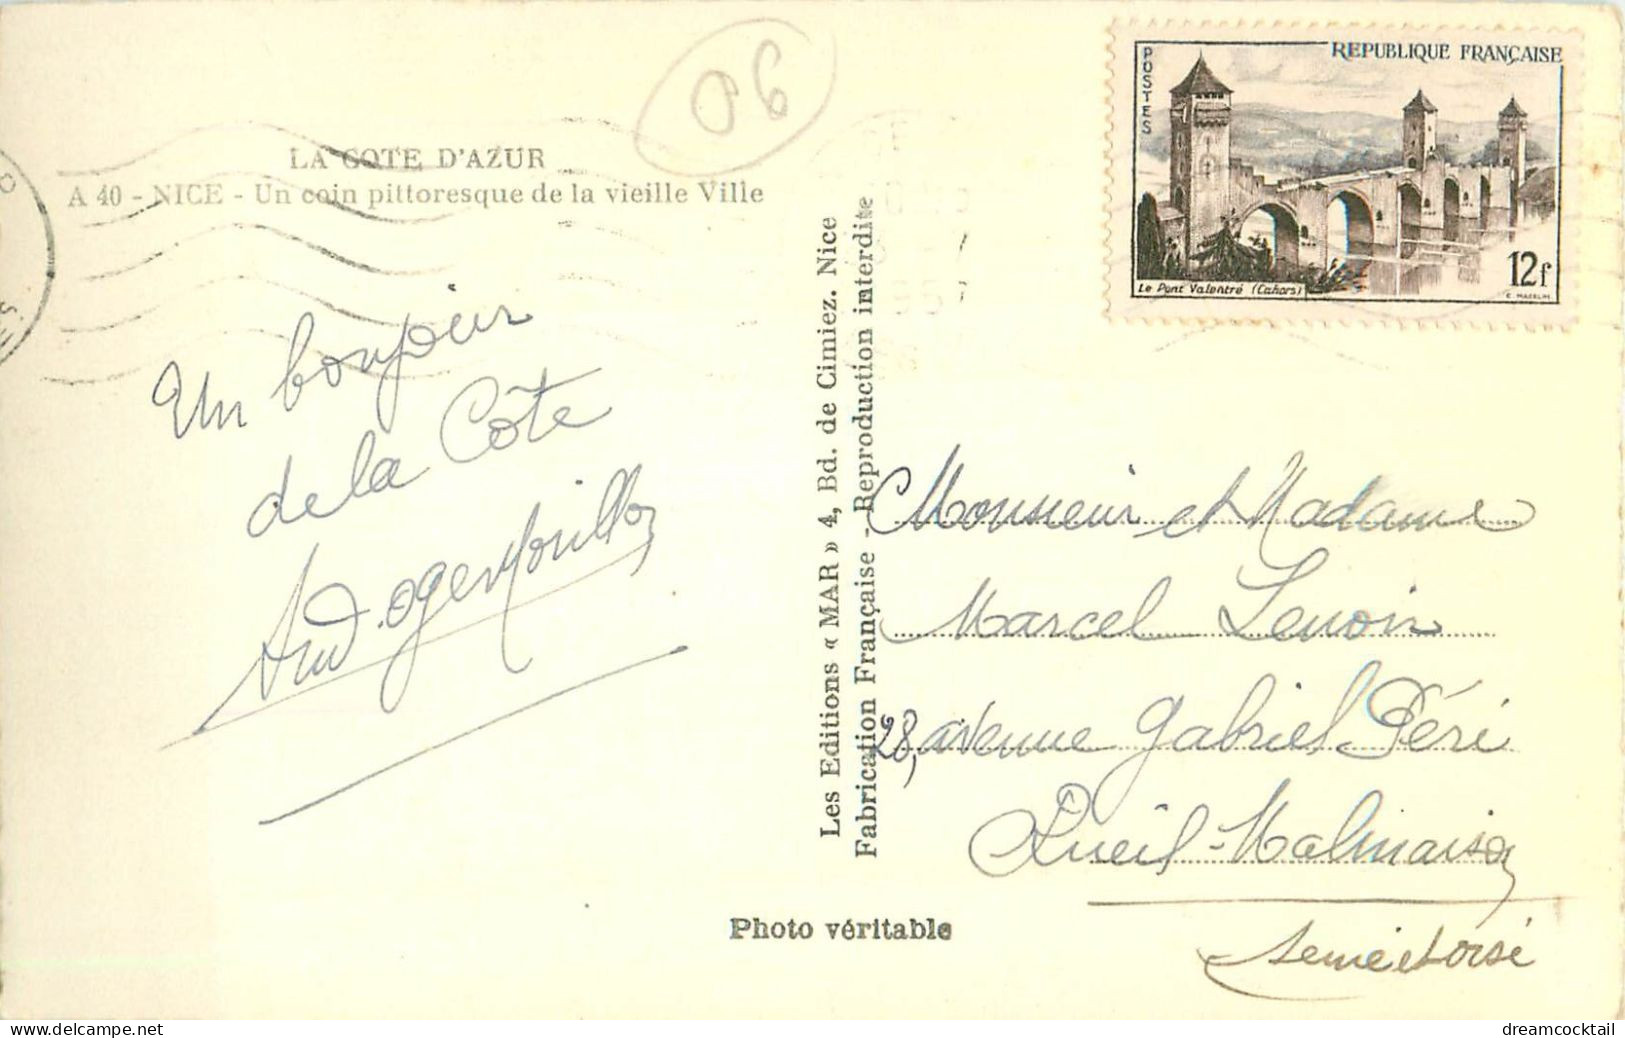 06
POSTES
REPUBLIQUE FRANÇAISE
Le Pont Valentré (Cahors)
12f
LA COTE D'AZUR
A 40 - NICE - Un coin pittoresque de la vieille Ville
Un bonjour
de la Côte
Les Editions « MAR » 4, Bd. de Cimiez. Nice
Fabrication Française - Reproduction interdite
Monsieur et Madame
Marcel Lenoir
28, avenue Gabriel Péri
Rueil-Malmaison
Seine et Oise
Photo véritable
dreamcocktail
delcampe.net